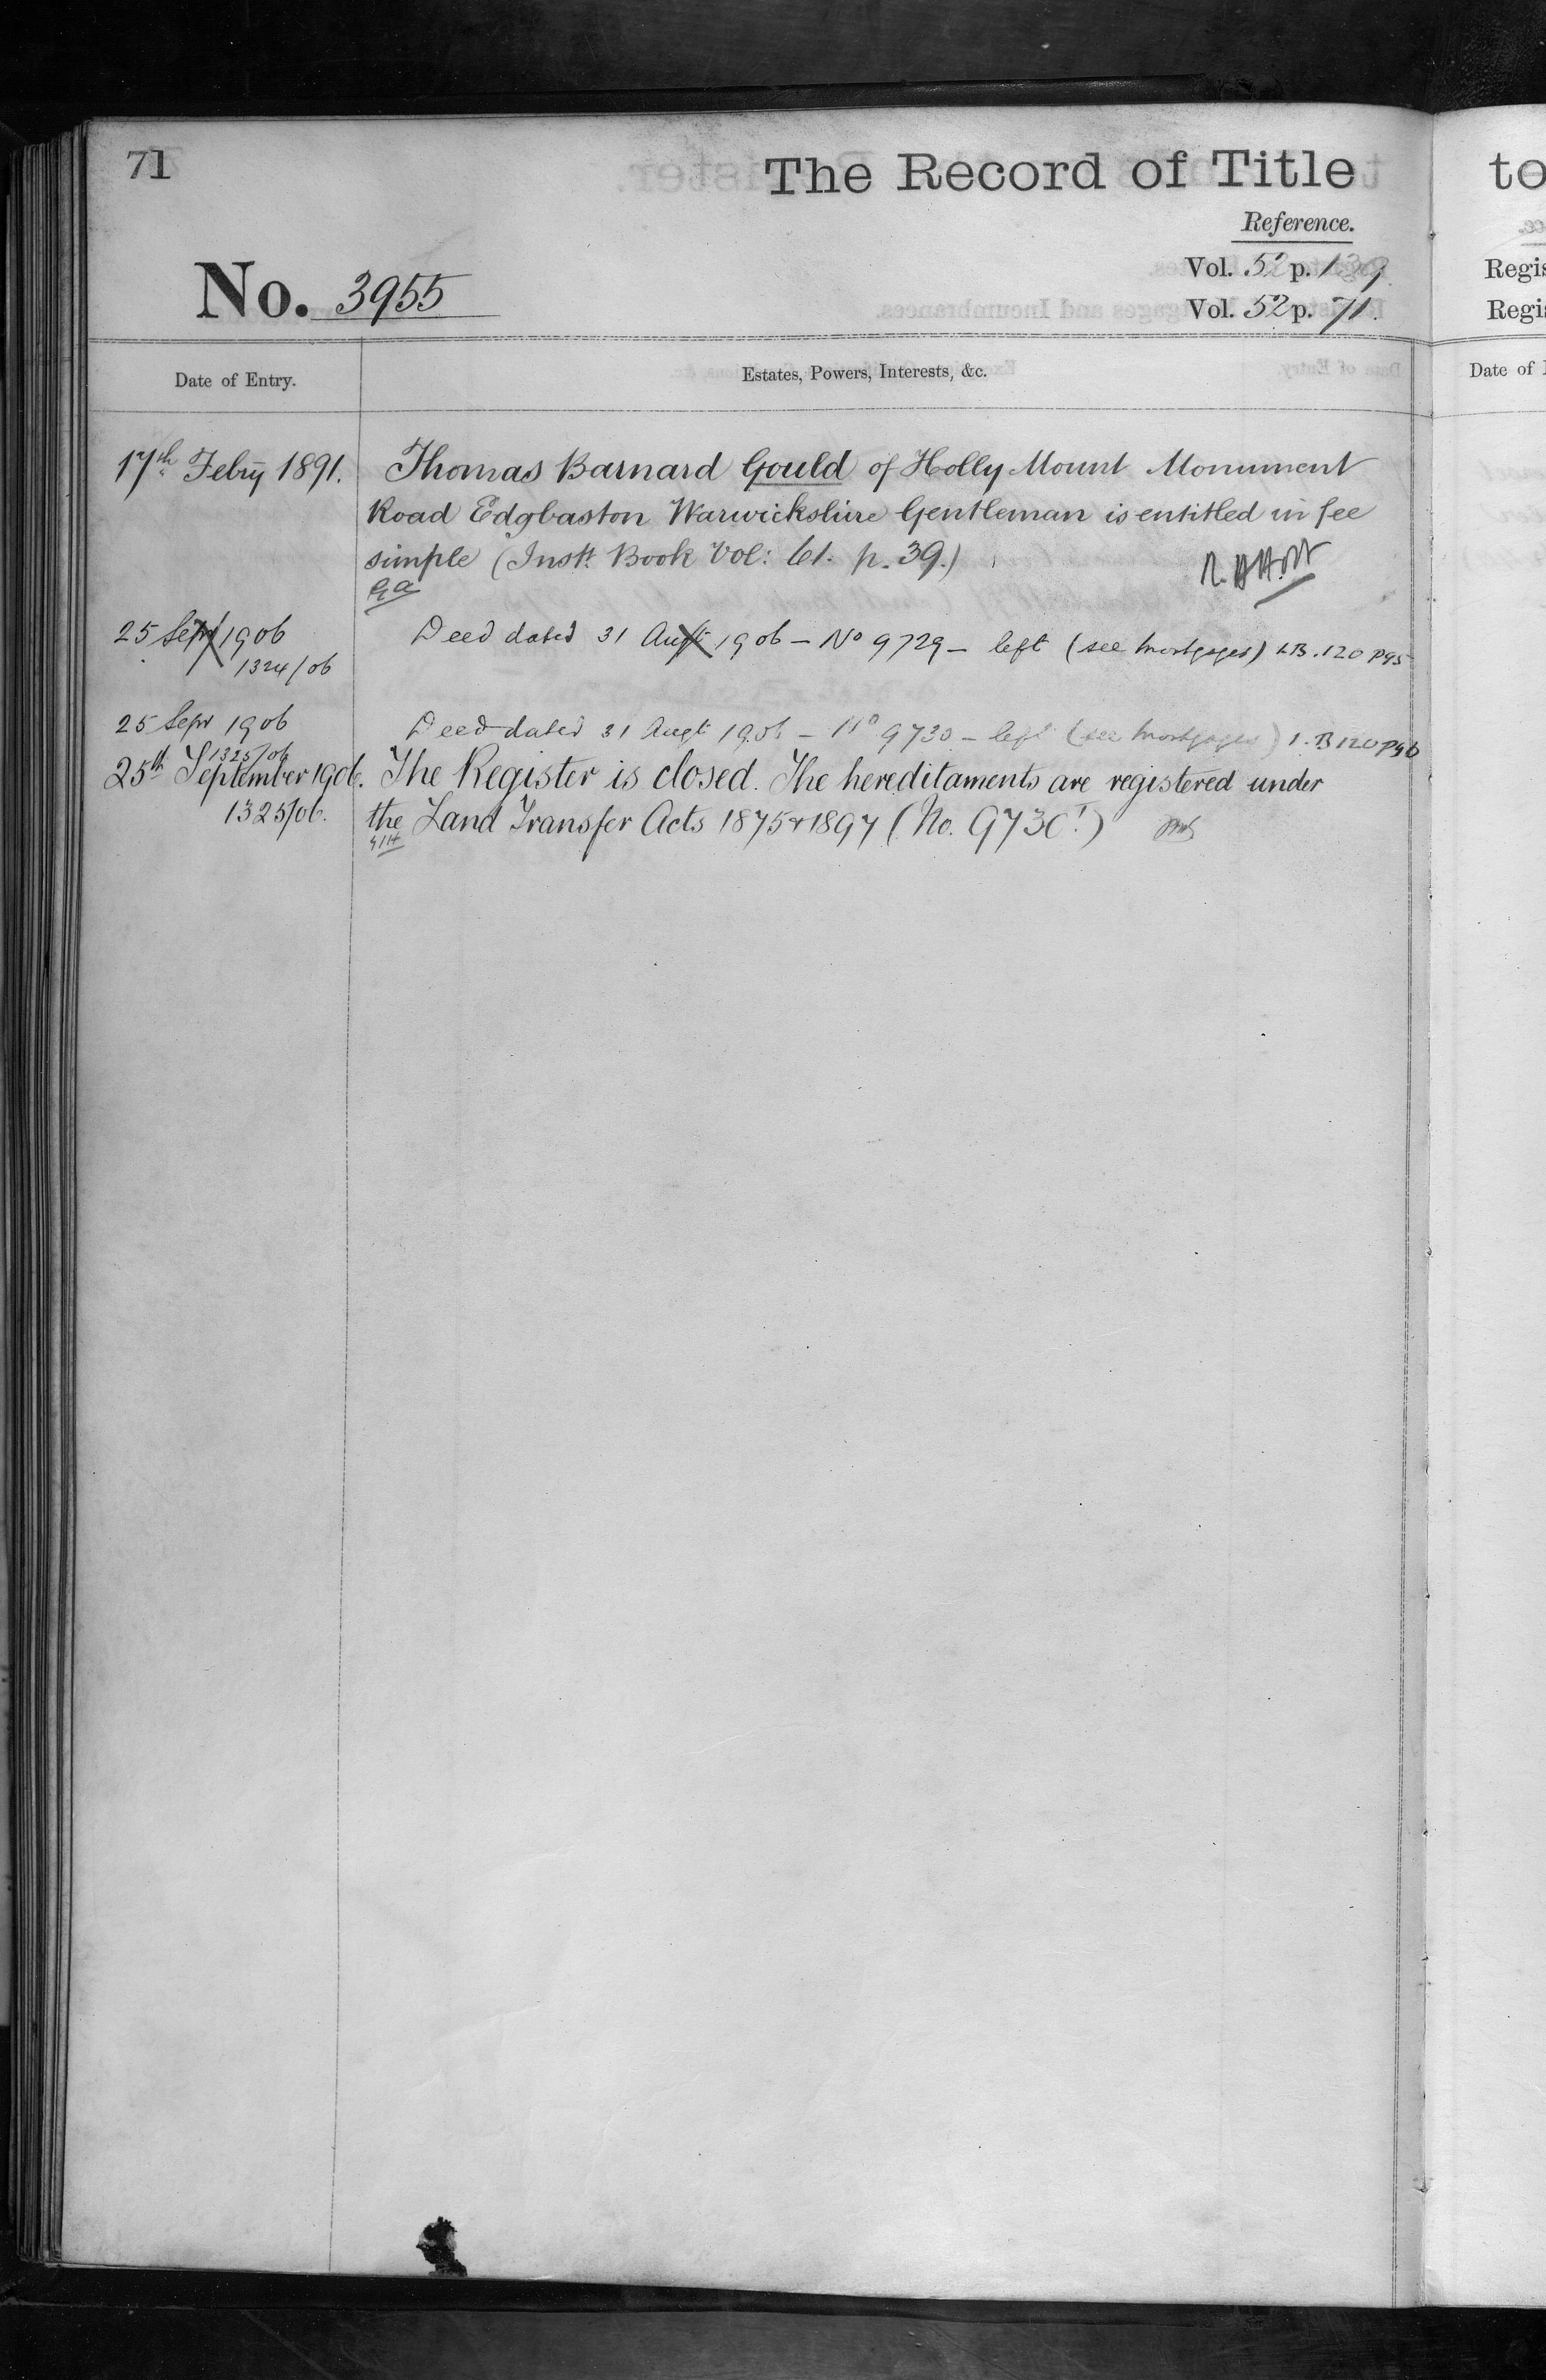 71
The Record of Title
Reference.
No. 3955
Vol. 52 p. 139.
Vol. 52 p. 71.
Date of Entry.
Estates, Powers, Interests, &c.
17th Febry 1891.
Thomas Barnard Gould of Holly Mount Monument
Road Edgbaston Warwickshire Gentleman is entitled in fee
simple (Instt. Book Vol: 61. p. 39.)
25 Sepr 1906
1324/06
Deed dated 31 Augt 1906 – No 9729 – left (see mortgages) I.B. 120 p95
25 Sepr 1906
1325/06
Deed dated 31 Augt 1906 – No 9730 – left (see mortgages) I.B 120 p96
25th September 1906.
1325/06.
The Register is closed. The hereditaments are registered under
the Land Transfer Acts 1875 & 1897 (No. 9730.)
to
Regis
Regis
Date of